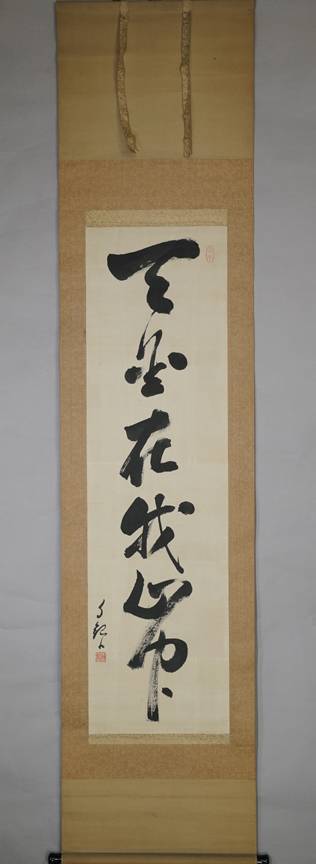 天堂在我心中